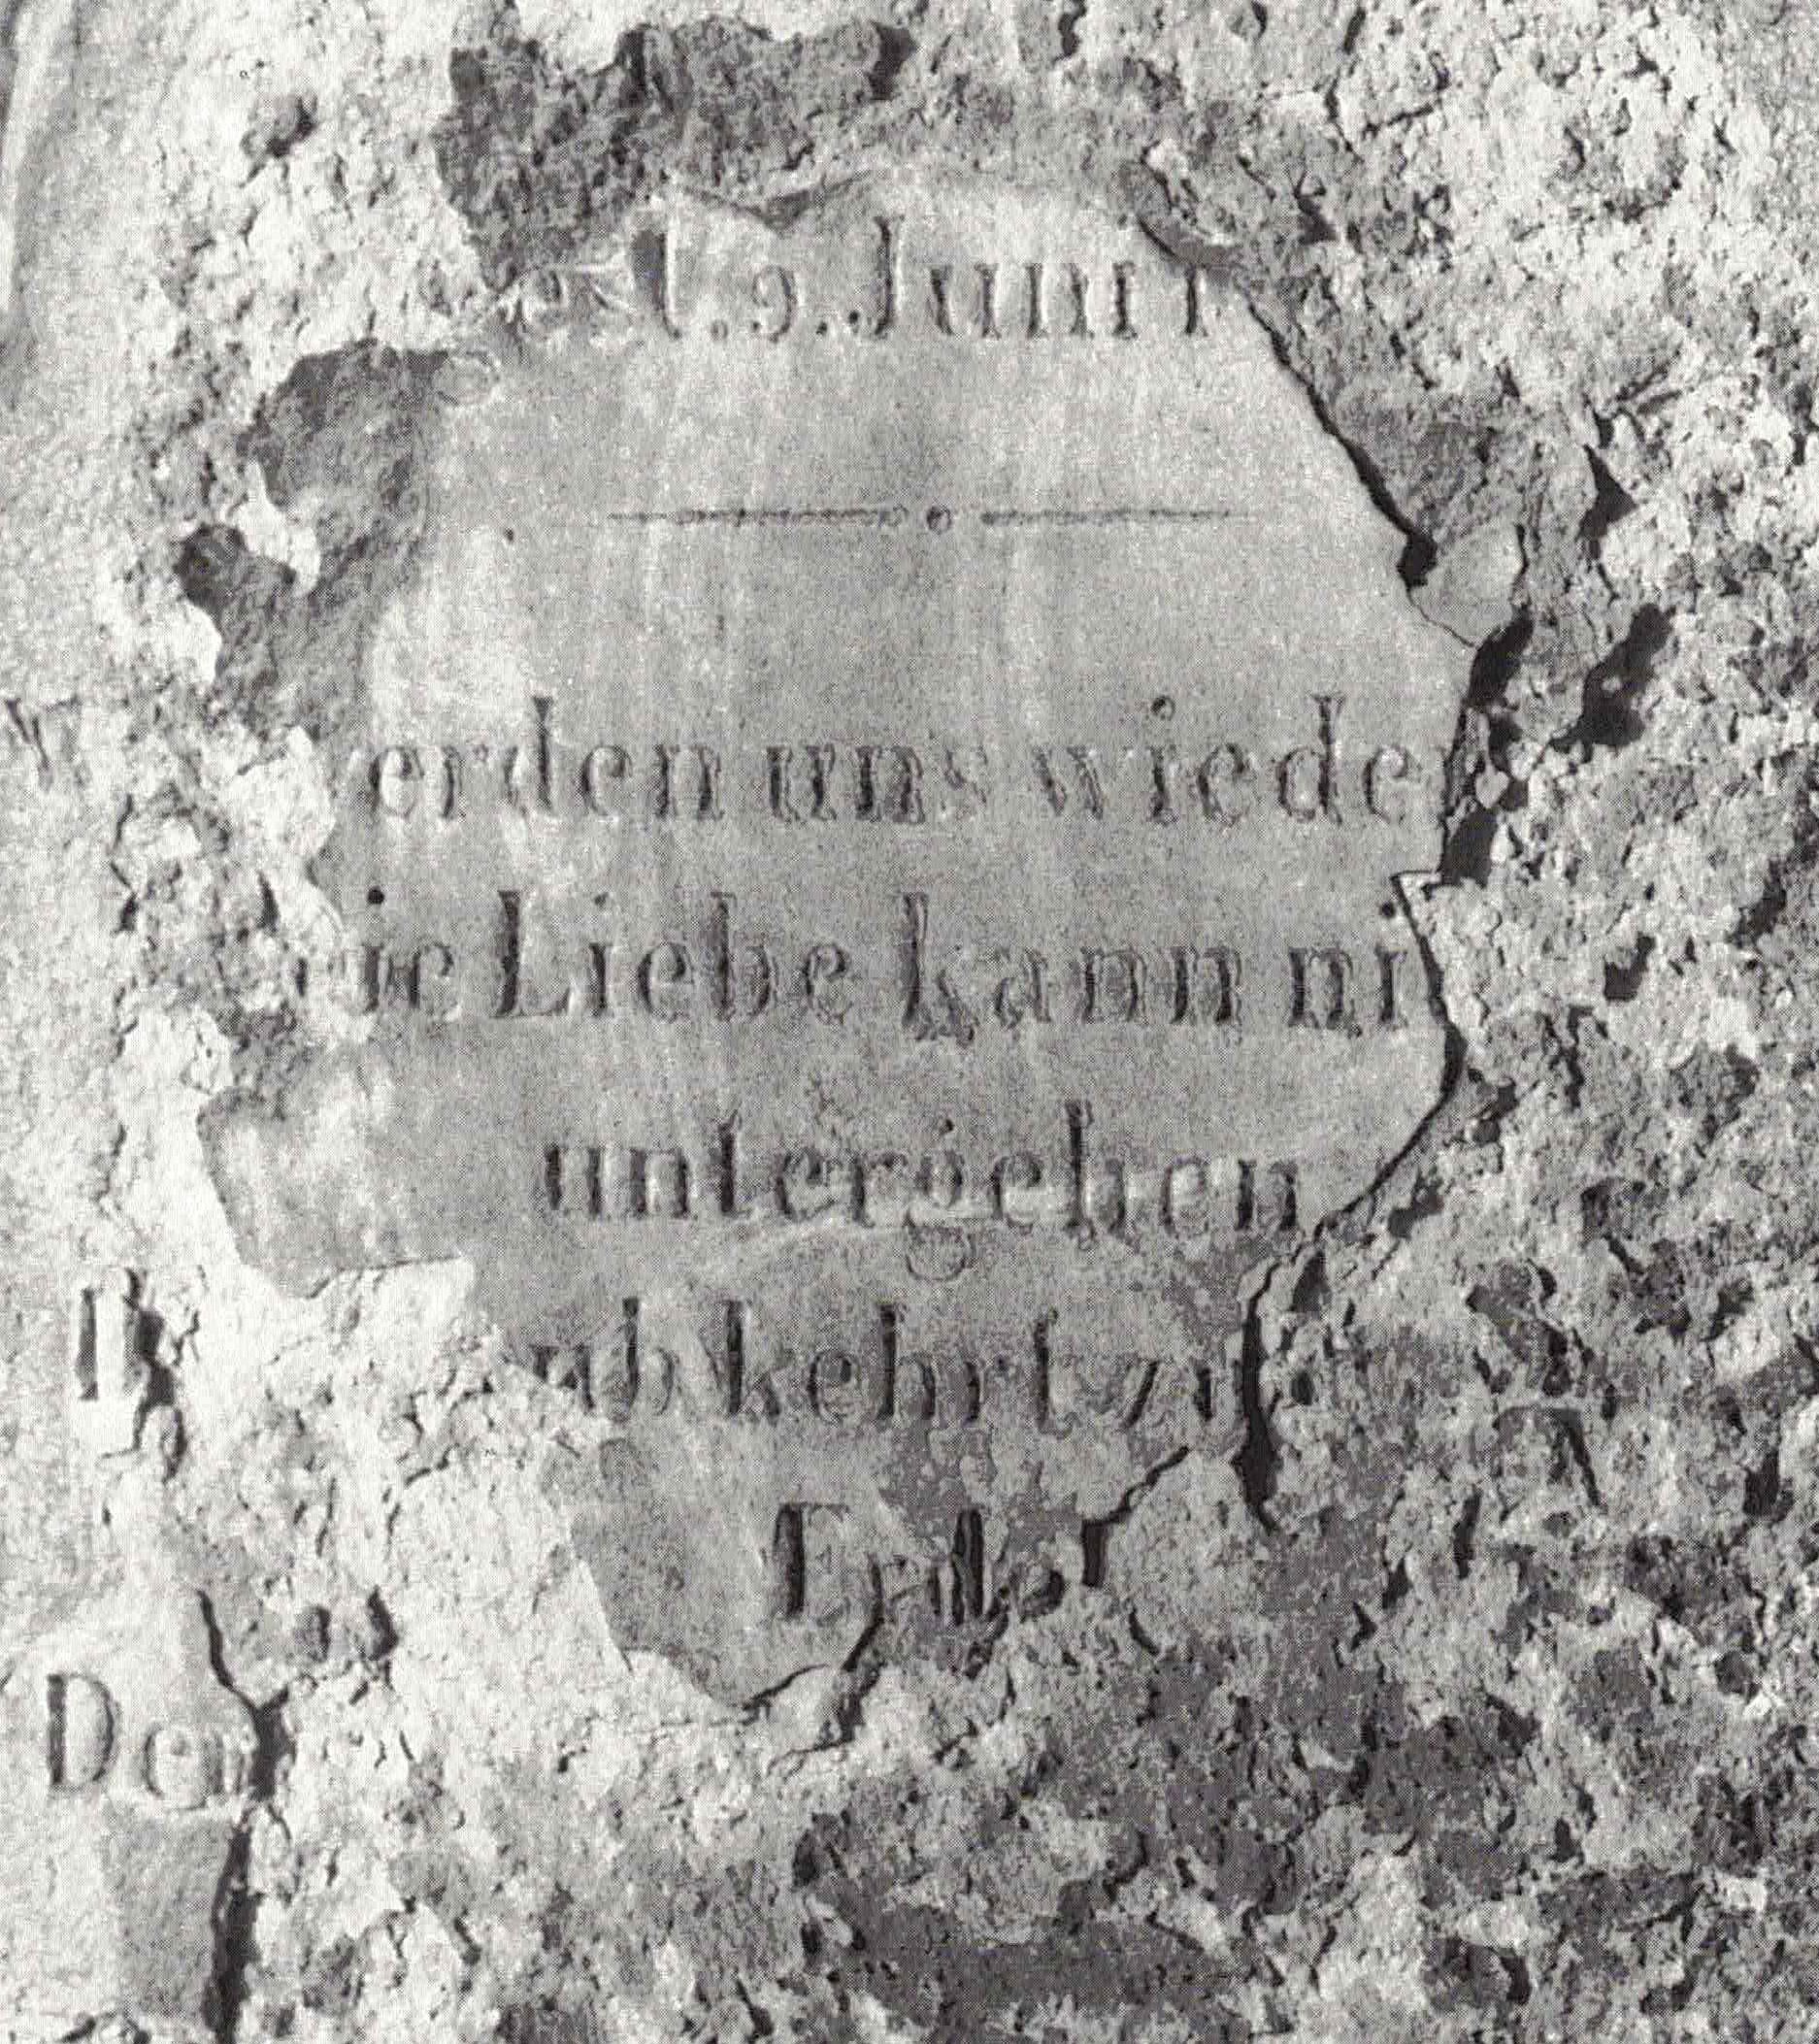 est. 9. Juni 1
W erden uns wieder
ie Liebe kann ni
untergehen
ub kehrt zu
D
Erde
Den